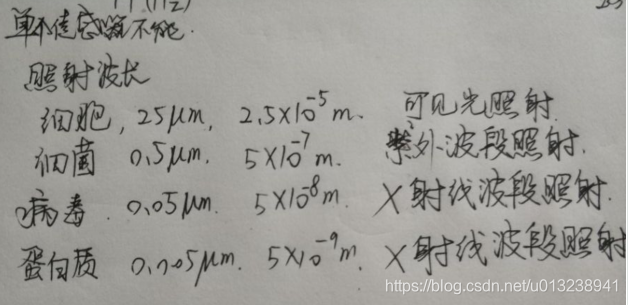 照射波长
细胞, 25μm, 2.5×10⁻⁵m. 可见光照射.
细菌 0.5μm. 5×10⁻⁷m. 紫外波段照射.
病毒. 0.05μm. 5×10⁻⁸m. X射线波段照射.
蛋白质 0.005μm. 5×10⁻⁹m. X射线波段照射
https://blog.csdn.net/u013238941